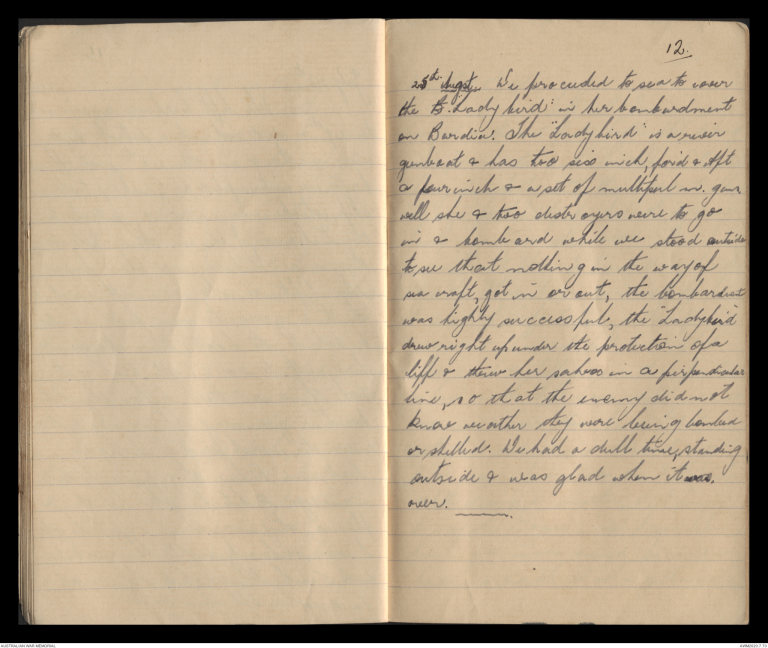 12.
25th Augst. We proceeded to sea to cover
the "Lady bird" in her bombardment
on Bardia. The "Ladybird" is a river
gunboat & has two six inch, for'd & Aft
a four inch & a set of multhpul m. guns
well she & two destroyers were to go
in & bombard while we stood outside
to see that nothing in the way of
sea craft, got in or out, the bombardment
was highly successful, the "Ladybird"
drew right up under the protection of a
cliff & threw her salvos in a perpendicular
line, so that the enemy did not
know weather they were being bombed
or shelled. We had a dull time, standing
outside & was glad when it was.
over.
AUSTRALIAN WAR MEMORIAL